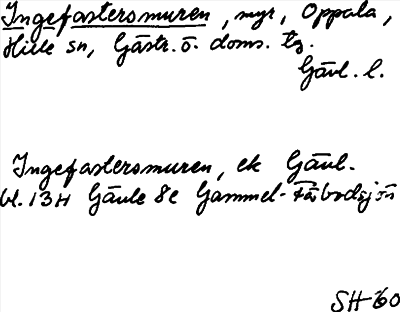 Ingefastersmuren, myr, Oppala,
Hille sn, Gästr. ö. doms. tg.
Gävl. l.
Ingefastersmuren, ek Gävl.
bl. 13H Gävle 8c Gammel-Fäbodsjön
SH 60